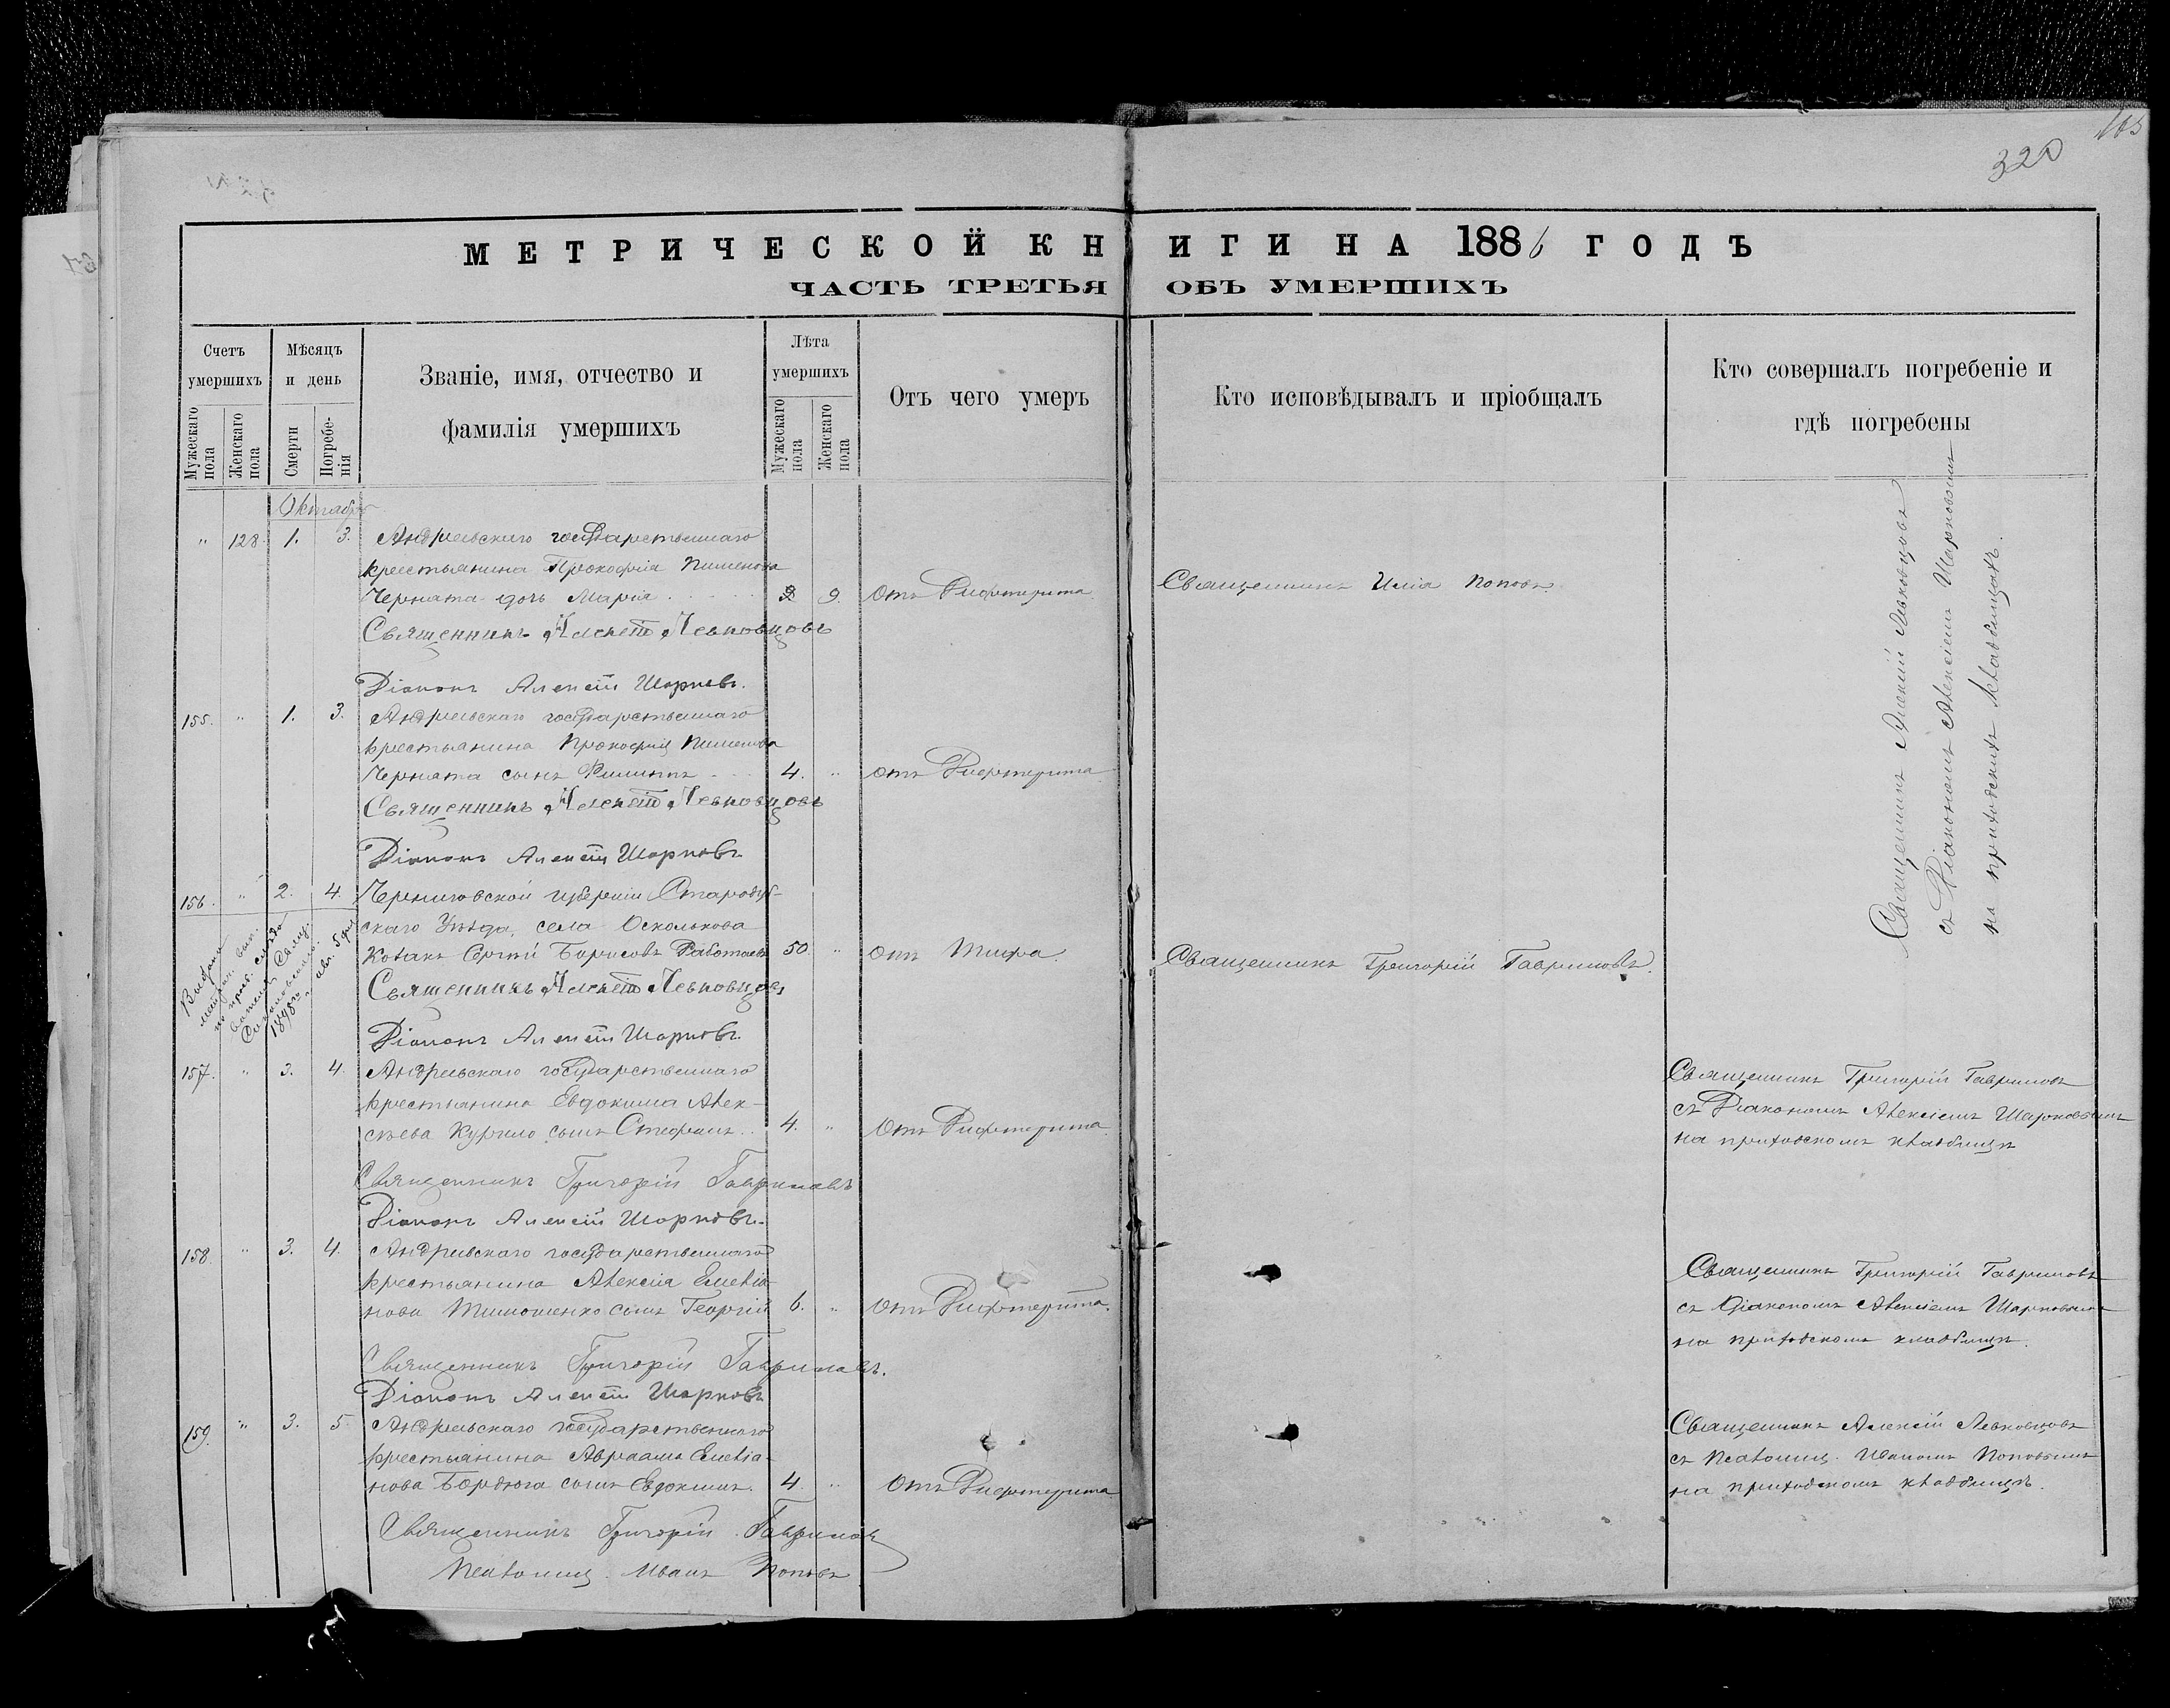 320
МЕТРИЧЕСКОЙ КНИГИ НА 1886 ГОДЪ
ЧАСТЬ ТРЕТЬЯ ОБЪ УМЕРШИХЪ
Счетъ умершихъ
Мужескаго пола
Женскаго пола
Мѣсяцъ и день
Смерти
Погребенія
Званіе, имя, отчество и фамилія умершихъ
Лѣта умершихъ
Мужескаго пола
Женскаго пола
Отъ чего умеръ
Кто исповѣдывалъ и пріобщалъ
Кто совершалъ погребеніе и гдѣ погребены
Октябрь
" 128. 1. 3. Андреевскаго государственнаго
крестьянина Прокофія Пименова
Черната дочь Марія 9. Отъ Дифтерита Священникъ Илія Поповъ
Священникъ Алексѣй Левковцовъ
Діаконъ Алексѣй Шарковъ.
Священникъ Алексій Левковцовъ
съ Діакономъ Алексіемъ Шарковымъ
на приходскихъ кладбищахъ.
155. " 1. 3. Андреевскаго государственнаго
крестьянина Прокофія Пименова
Черната сынъ Филиппъ 4. " Отъ Дифтерита
Священникъ Алексѣй Левковцовъ
Діаконъ Алексѣй Шарковъ
156. " 2. 4. Черниговской губерніи Стародуб-
скаго Уѣзда, села Осколькова
Козакъ Сергій Борисовъ Работаевъ 50. " Отъ Тифа. Священникъ Григорій Гавриловъ.
Священникъ Алексѣй Левковцовъ
Діаконъ Алексѣй Шарковъ.
157. " 3. 4. Андреевскаго государственнаго
крестьянина Евдокима Алек-
сѣева Курило сынъ Стефанъ 4. " Отъ Дифтерита
Священникъ Григорій Гавриловъ
съ Діакономъ Алексіемъ Шарковымъ
на приходскомъ кладбищѣ
Священникъ Григорій Гавриловъ
Діаконъ Алексій Шарковъ.
158. " 3. 4. Андреевскаго государственнаго
крестьянина Алексія Емелія-
нова Тимошенко сынъ Георгій 6. " Отъ Дифтерита.
Священникъ Григорій Гавриловъ
съ Діакономъ Алексіемъ Шарковымъ
на приходскомъ кладбищѣ.
Священникъ Григорій Гавриловъ.
Діаконъ Алексѣй Шарковъ
159. " 3. 5. Андреевскаго государственнаго
крестьянина Авраама Емелія-
нова Бордюга сынъ Евдокимъ. 4. " Отъ Дифтерита
Священникъ Алексій Левковцовъ
съ Псаломщ. Иваномъ Поповымъ
на приходскомъ кладбищѣ.
Священникъ Григорій Гавриловъ
Псаломщ. Иванъ Поповъ